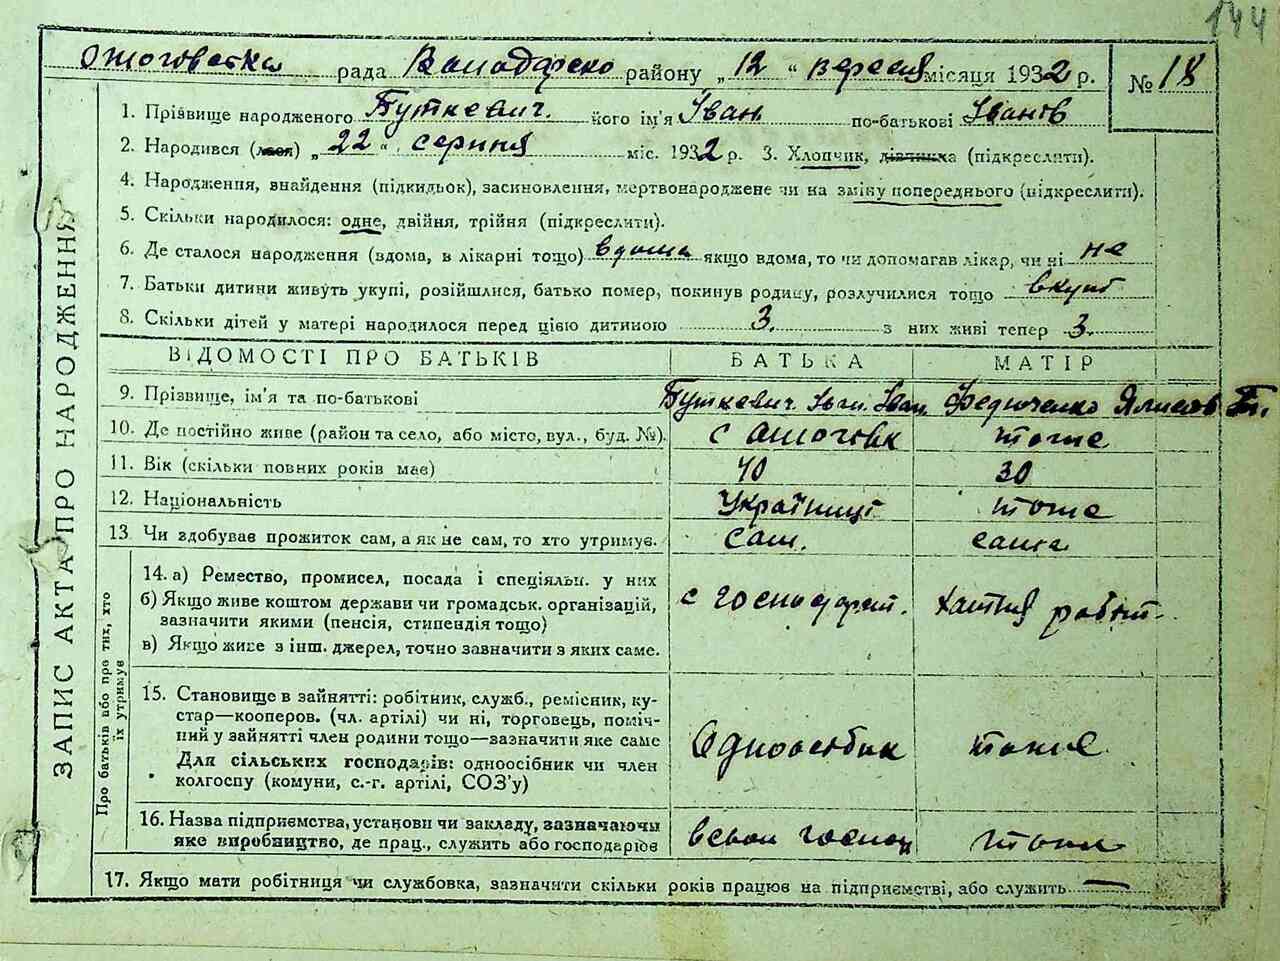 144
рада Володарсько району „12“ вересня місяця 1932 р. № 18
1. Прізвище народженого Буткевич. його ім'я Іван по-батькові Іванов
2. Народився (лася) „22“ серпня міс. 1932 р. 3. Хлопчик, дівчинка (підкреслити).
4. Народження, внайдення (підкидьок), засиновлення, мертвонароджене чи на зміну попереднього (підкреслити).
5. Скільки народилося: одне, двійня, трійня (підкреслити).
6. Де сталося народження (вдома, в лікарні тощо) вдома якщо вдома, то чи допомагав лікар, чи ні не
7. Батьки дитини живуть укупі, розійшлися, батько помер, покинув родину, розлучилися тощо вкупі
8. Скільки дітей у матері народилося перед цією дитиною 3. з них живі тепер 3.
ЗАПИС АКТА ПРО НАРОДЖЕННЯ
ВІДОМОСТІ ПРО БАТЬКІВ БАТЬКА МАТІР
9. Прізвище, ім'я та по-батькові Буткевич Іван Іван Федюченко
10. Де постійно живе (район та село, або місто, вул., буд. №). с тоже
11. Вік (скільки повних років має) 40 30
12. Національність Українці тоже
13 Чи здобував прожиток сам, а як не сам, то хто утримує. сам. сама
Про батьків або про тих, хто
їх утримує
14. а) Ремество, промисел, посада і спеціяльн. у них
б) Якщо живе коштом держави чи громадськ. організацій, с господарст. хатня робіт.
зазначити якими (пенсія, стипендія тощо)
в) Якщо живе з інш. джерел, точно зазначити з яких саме.
15. Становище в зайнятті: робітник, служб., ремісник, ку-
стар—кооперов. (чл. артілі) чи ні, торговець, поміч-
ний у зайнятті член родини тощо—зазначити яке саме Одноосібник тоже
Для сільських господарів: одноосібник чи член
колгоспу (комуни, с.-г. артілі, СОЗ'у)
16. Назва підприємства, установи чи закладу, зазначаючи
яке виробництво, де прац., служить або господарює всвом господ тоже
17. Якщо мати робітниця чи службовка, зазначити скільки років працює на підприємстві, або служить —